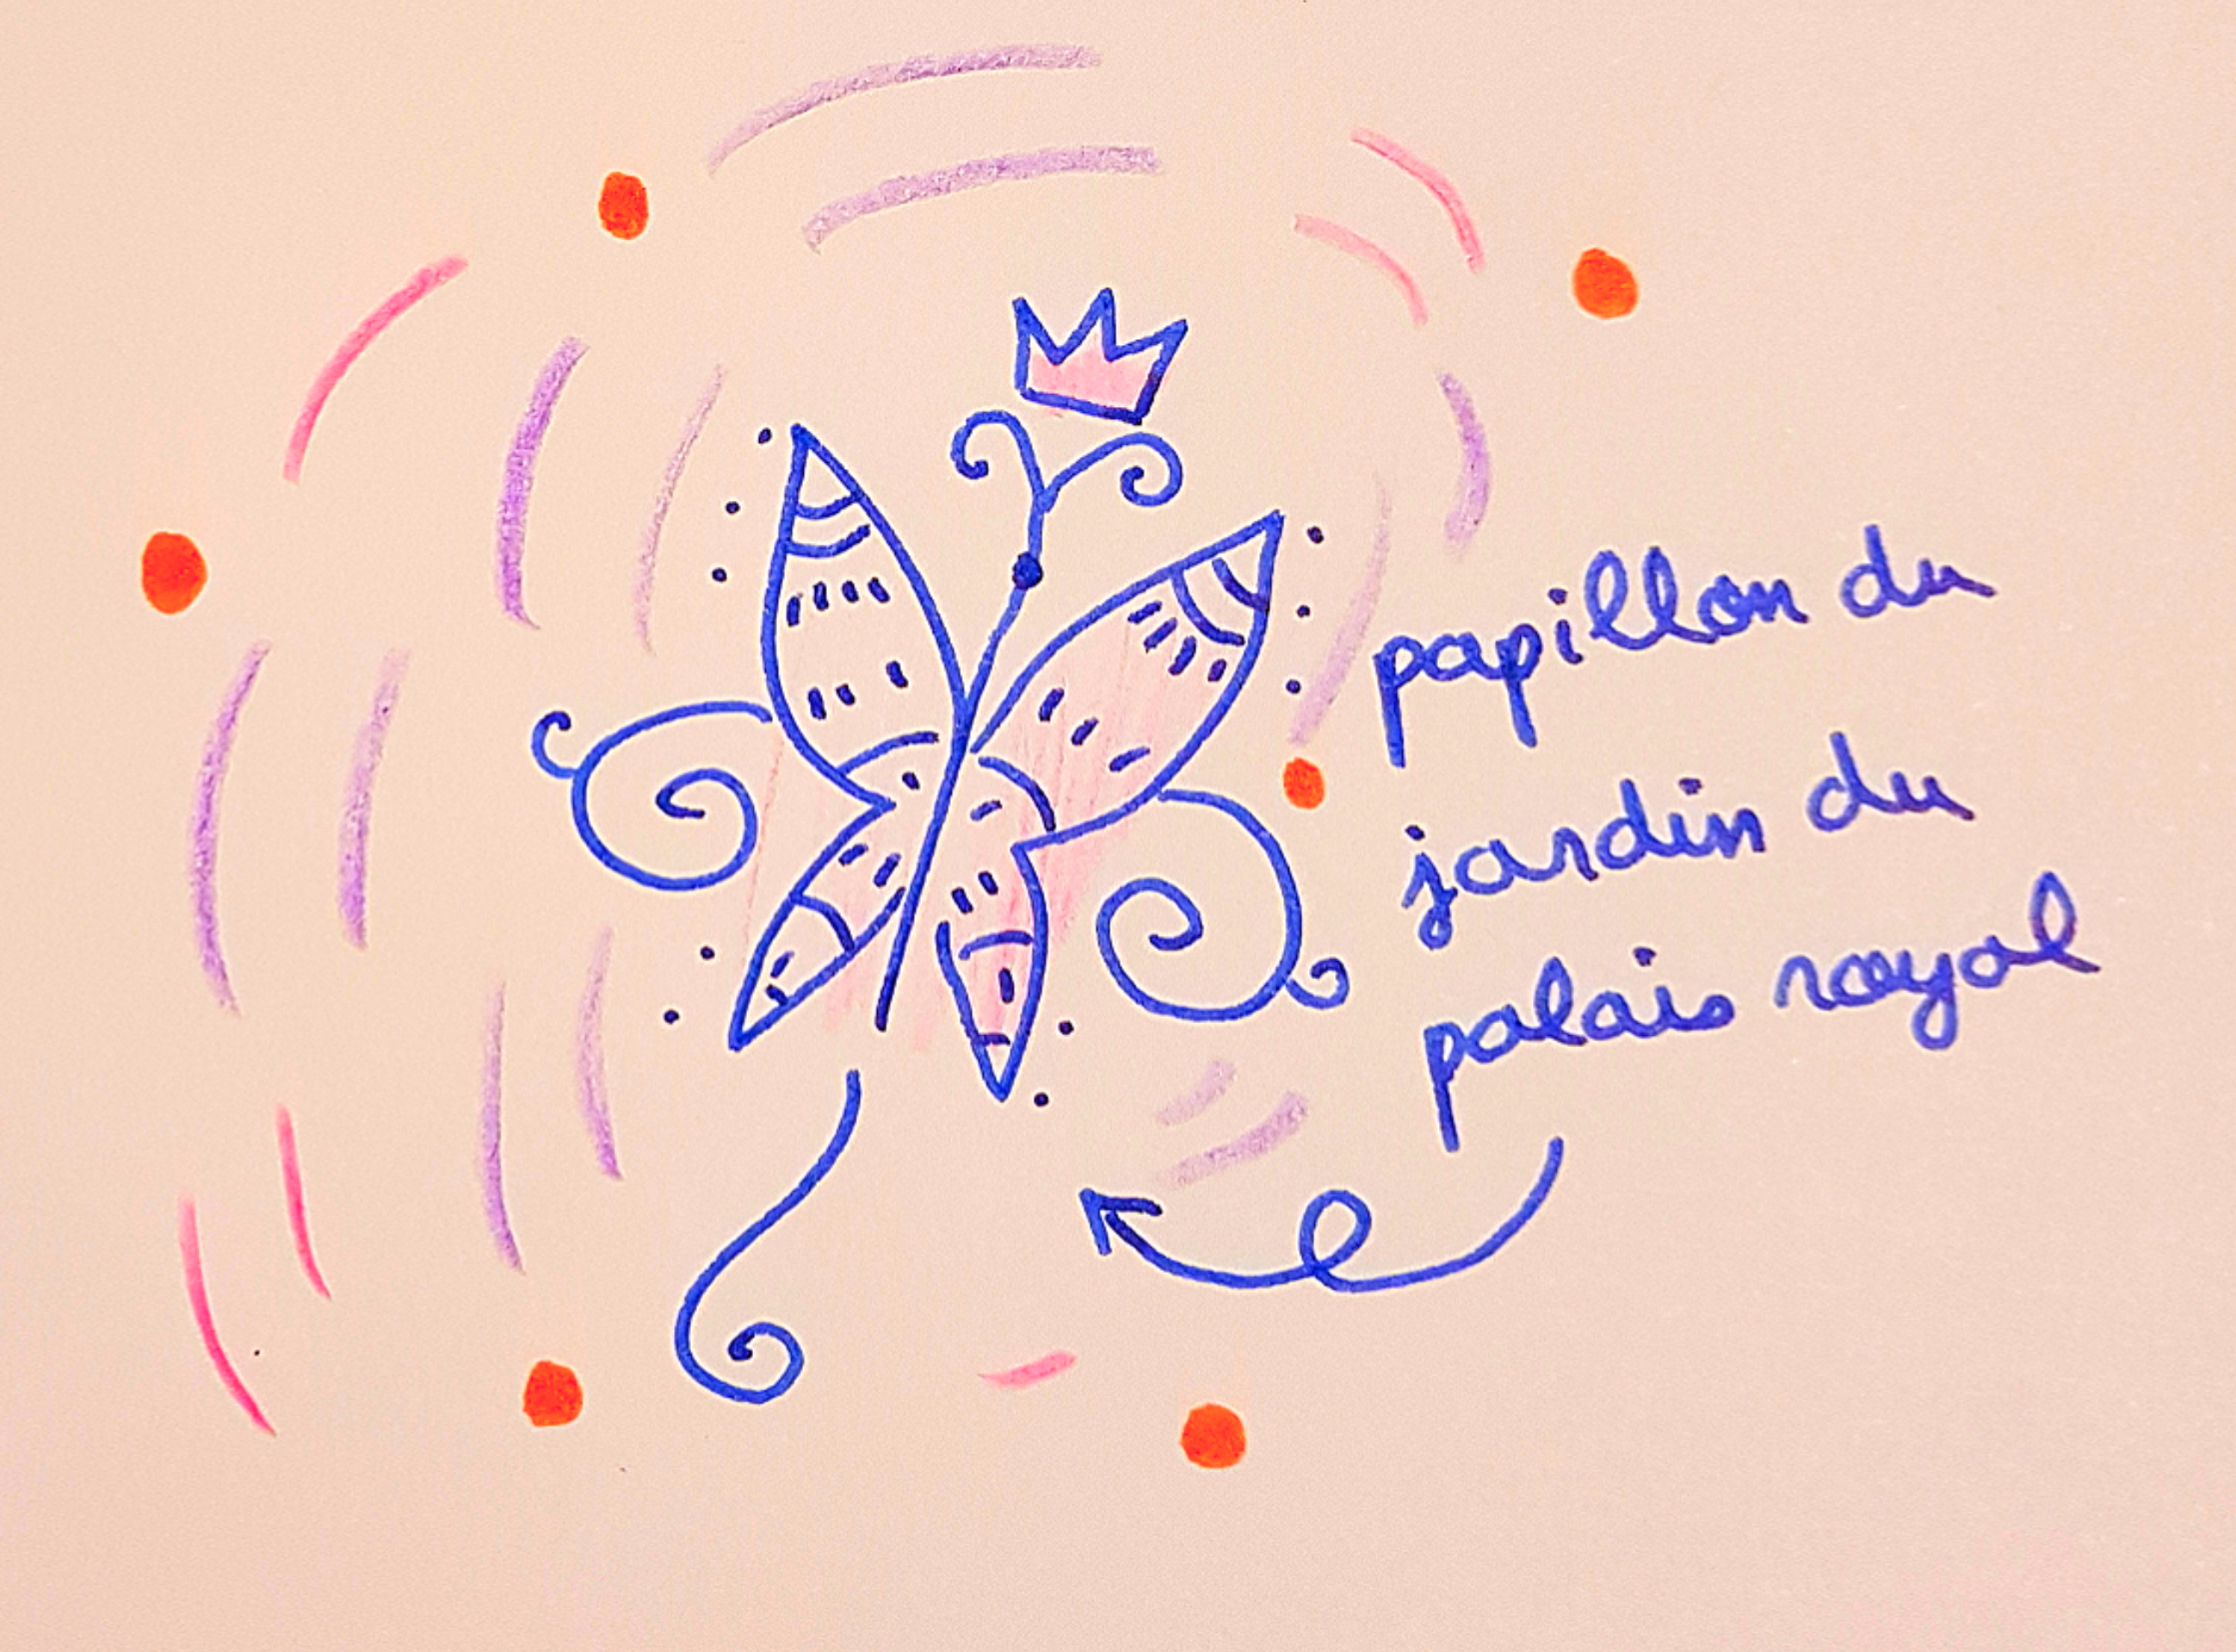 papillon du
jardin du
palais royal